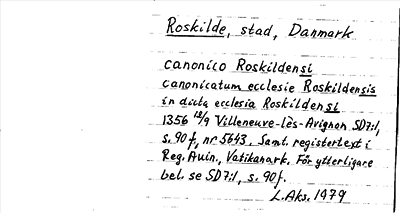 Roskilde, stad, Danmark
canonico Roskildensi
canonicatum ecclesie Roskildensis
in dicta ecclesia Roskildensi
1356 18/9 Villeneuve-lès-Avignon SD7:1,
s. 90f, nr 5643. Samt. registertext i
Reg. Avin., Vatikanark. För ytterligare
bel. se SD7:1, s. 90f.
L. Aks. 1979